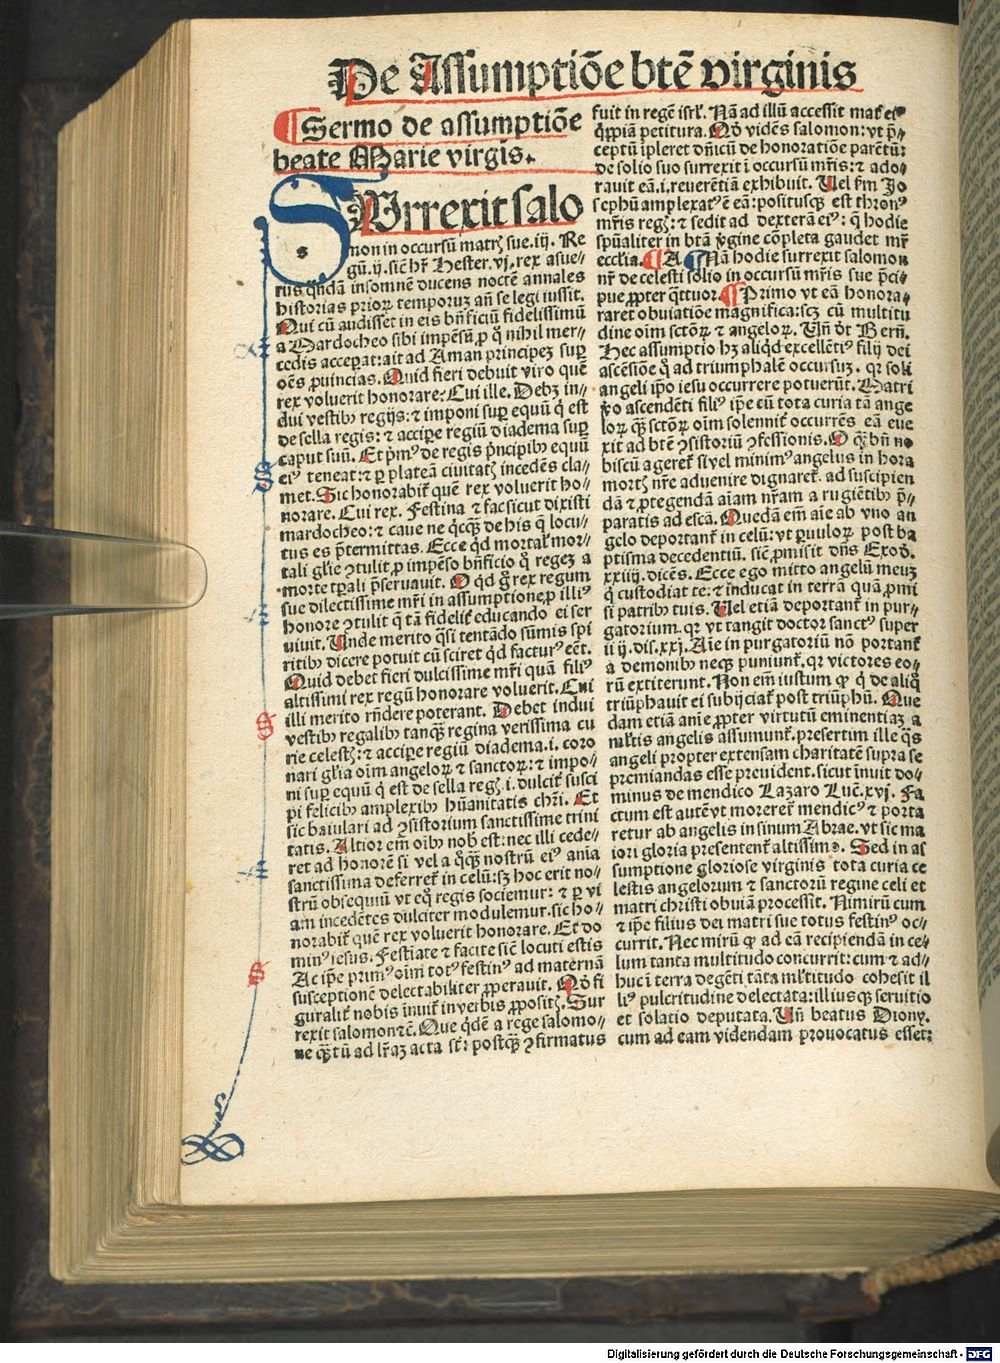 De Assumptiõe btẽ virginis
¶ Sermo de assumptiõe
beate Marie virgis.
SUrrexit salo
mon in occursũ matrꝭ sue. iij. Re
gũ. ij. sič hr̃ Hester. vj. rex asue⸗
rus qñdã insomnẽ ducens noctẽ annales
historias prioꝝ temporuꝫ añ se legi iussit.
Qui cũ audisset in eis bñficiũ fidelissimũ
a Mardocheo sibi impẽsũ ꝓ q̊ nihil mer⸗
cedis acceperat: ait ad Aman principeꝫ suꝑ
oẽs ꝓuincias. Quid fieri debuit viro quẽ
rex voluerit honorare? Cui ille. Debꝫ in⸗
dui vestibꝰ regijs: ⁊ imponi suꝑ equũ q̇ est
de sella regis: ⁊ accipe regiũ diadema suꝑ
caput suũ. Et pͥmꝰ de regis pͥncipibꝰ equũ
eiꝰ teneat: ⁊ ꝑ plateã ciuitatꝭ incedẽs cla⸗
met. Sic honorabiť quẽ rex voluerit ho⸗
norare. Cui rex. Festina ⁊ fac sicut dixisti
mardocheo: ⁊ caue ne q̇cq̃ꝫ de his q̃ locu⸗
tus es p̃termittas. Ecce q̇d mortaľ mor⸗
tali gľie ꝯtulit ꝓ impẽso bñficio q̊ regeꝫ a
morte tꝑali p̃seruauit. O q̇d g̊ rex regum
sue dilectissime mr̃i in assumptione ꝓ illiꝰ
honore ꝯtulit q̃ tã fideliť educando ei ser
uiuit. Unde merito q̃si tentãdo sũmis spi
ritibꝰ dicere potuit cũ sciret q̇d facturꝰ eẽt.
Quid debet fieri dulcissime mr̃i quã filiꝰ
altissimi rex regũ honorare voluerit. Cui
illi merito rñdere poterant. Debet indui
vestibꝰ regalibꝰ tanq̃ꝫ regina verissima cu
rie celestꝭ: ⁊ accipe regiũ diadema .i. coro
nari gľia oĩm angeloꝝ ⁊ sanctoꝝ: ⁊ impo⸗
ni suꝑ equũ q̇ est de sella regꝭ .i. dulciť susci
pi felicibꝰ amplexibꝰ hũanitatis chr̃i. Et
sic baiulari ad ꝯsistorium sanctissime trini
tatis. Altior em̃ oĩbꝰ nob̃ est: nec illi cede⸗
ret ad honorẽ si vel a q̇cq̃ꝫ nostrũ eiꝰ aĩa
sanctissima deferreť in celũ: sꝫ hoc erit no⸗
strũ obsequiũ vt eq̊ regis sociemur: ⁊ ꝑ vi
am incedẽtes dulciter modulemur. sic ho⸗
norabiť quẽ rex voluerit honorare. Et do
minꝰ iesus. Festĩate ⁊ facite sič locuti estis
Ac ip̃e primꝰ oĩm totꝰ festinꝰ ad maternã
susceptionẽ delectabiliter ꝓperauit. Qď fi
guraliť nobis ĩnuiť in verbis ꝓpositꝭ. Sur
rexit salomon ⁊č. Que q̇dẽ a rege salomo⸗
ne q̃ꝫtũ ad lr̃aꝫ acta sť: postq̃ꝫ ꝯfirmatus
fuit in regẽ isrľ. Nã ad illũ accessit maľ eiꝰ
q̇ppiã petitura. Qď vidẽs salomon: vt p̃⸗
ceptũ ĩpleret dñicũ de honoratiõe parẽtũ:
de solio suo surrexit ĩ occursũ mr̃is: ⁊ ado⸗
rauit eã .i. reuerẽtiã exhibuit. Uel fm̃ Jo
sephũ amplexatꝰ ẽ eã: positusq̃ꝫ est thronꝰ
mr̃is regꝭ: ⁊ sedit ad dexterã eiꝰ: q̃ hodie
spũaliter in btã ꝟgine cõpleta gaudet mr̃
ecclia. ¶ A ¶ Nã hodie surrexit salomon
nr̃ de celesti solio in occursũ mr̃is sue p̃ci⸗
pue ꝓpter q̃ttuor. ¶ Primo vt eã honora⸗
raret obuiatiõe magnifica: scꝫ cũ multitu
dine oĩm sctõꝝ ⁊ angeloꝝ. Uñ ďt Bern̄.
Hec assumptio hꝫ aliq̇d excellẽtiꝰ filij dei
ascẽsiõe q̊ ad triumphalẽ occursuꝫ. qꝛ soli
angeli ip̃o iesu occurrere potuerũt. Matri
ꝟo ascendẽti filiꝰ ip̃e cũ tota curia tã ange
loꝝ q̃ꝫ sctõꝝ oĩm solenniť occurrẽs eã eue
xit ad btẽ ꝯsistoriũ ꝯfessionis. O q̃ꝫ bñ no
biscũ ageret̃ si vel minimꝰ angelus in hora
mortꝭ nr̃e aduenire dignaret̃. ad suscipien
dã ⁊ ꝓtegendã aĩam nr̃am a rugiẽtibꝰ p̃⸗
paratis ad escã. Quedã em̃ aĩe ab vno an
gelo deportant̃ in celũ: vt ꝑuuloꝝ post ba
ptisma decedentiũ. sič ꝓmisit dñs Exoď.
xxiij. dicẽs. Ecce ego mitto angelũ meuꝫ
q̇ custodiat te: ⁊ ĩnducat in terrã quã ꝓmi
si patribꝰ tuis. Uel etiã deportant̃ in pur⸗
gatorium. qꝛ vt tangit doctor sanctꝰ super
iiij. dis. xxj. Aĩe in purgatoriũ nõ portant̃
a demonibꝰ neqꝫ puniunt̃. qꝛ victores eo⸗
rũ extiterunt. Non em̃ iustum qͥ q̇ de aliq̊
triũphauit ei subijciat̃ post triũphũ. Que
dam etiã anĩe ꝓpter virtutũ eminentiaꝫ a
mľtis angelis assumunt̃. presertim ille q̃s
angeli propter extensam charitatẽ supra se
premiandas esse preuident. sicut ĩnuit do⸗
minus de mendico Lazaro Luč. xvj. Fa
ctum est autẽ vt moreret̃ mendicꝰ ⁊ porta
retur ab angelis in sinum Abrae. vt sic ma
iori gloria presentent̃ altissimo. Sed in as
sumptione gloriose virginis tota curia ce
lestis angelorum ⁊ sanctorũ regine celi et
matri christi obuiã processit. Nimirũ cum
⁊ ip̃e filius dei matri sue totus festinꝰ oc⸗
currit. Nec mirũ qͥ ad eã recipiendã in ce⸗
lum tanta multitudo concurrit: cum ⁊ ad⸗
huc ĩ terra degẽti tãta mľtitudo cohesit il
liꝰ pulcritudine delectata: illiusq̃ꝫ seruitio
et solatio deputata. Uñ beatus Diony.
cum ad eam videndam prouocatus esset:
Digitalisierung gefördert durch die Deutsche Forschungsgemeinschaft - DFG